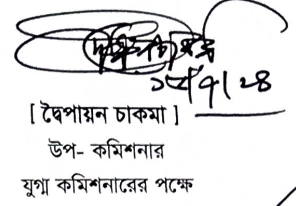 ১৮/৭/২৪
[ দ্বৈপায়ন চাকমা ]
উপ- কমিশনার
যুগ্ম কমিশনারের পক্ষে